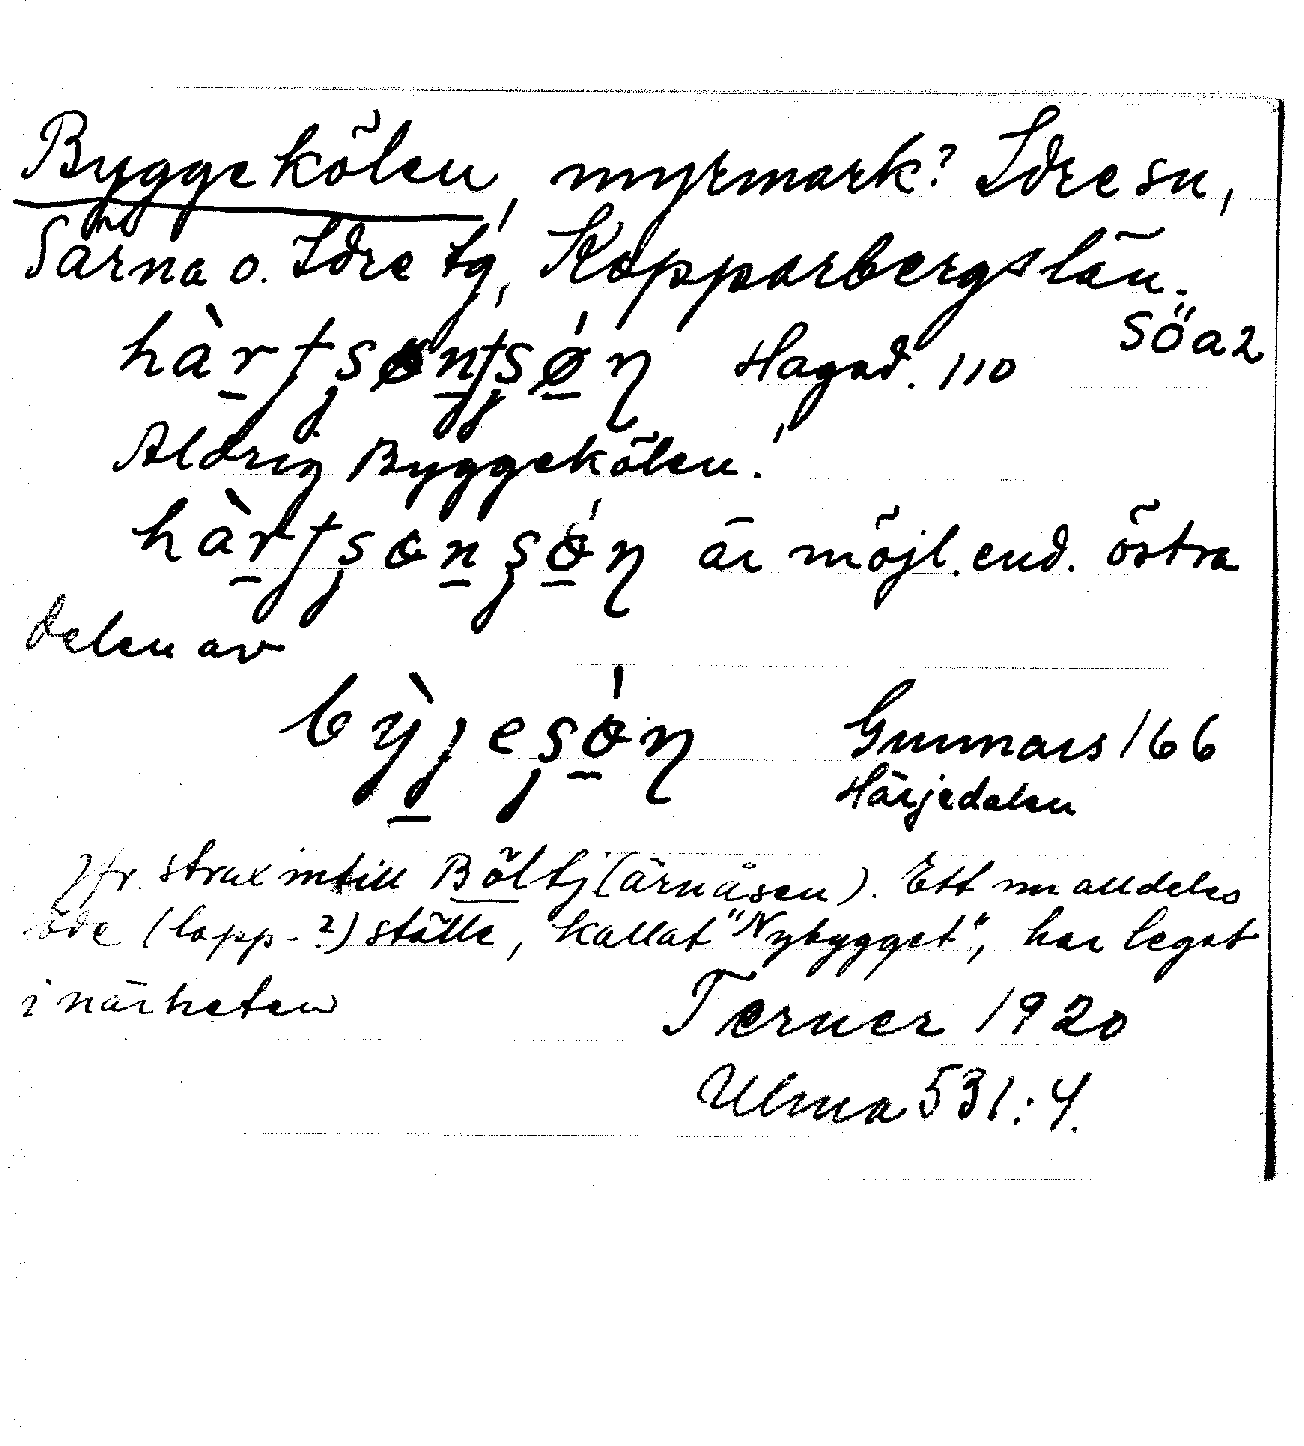 Byggekölen, myrmark? Idre sn,
Särna o. Idre tg, Kopparbergs län.
SÖa2
Hagad. 110
Aldrig Byggekölen!
är möjl. end. östra
delen av
Gunnars 166
Härjedalen
Jfr strax intill Böltj(ärnåsen). Ett nu alldeles
öde (lapp-?) ställe, kallat "Nybygget", har legat
i närheten
Terner 1920
Ulma 531:4.